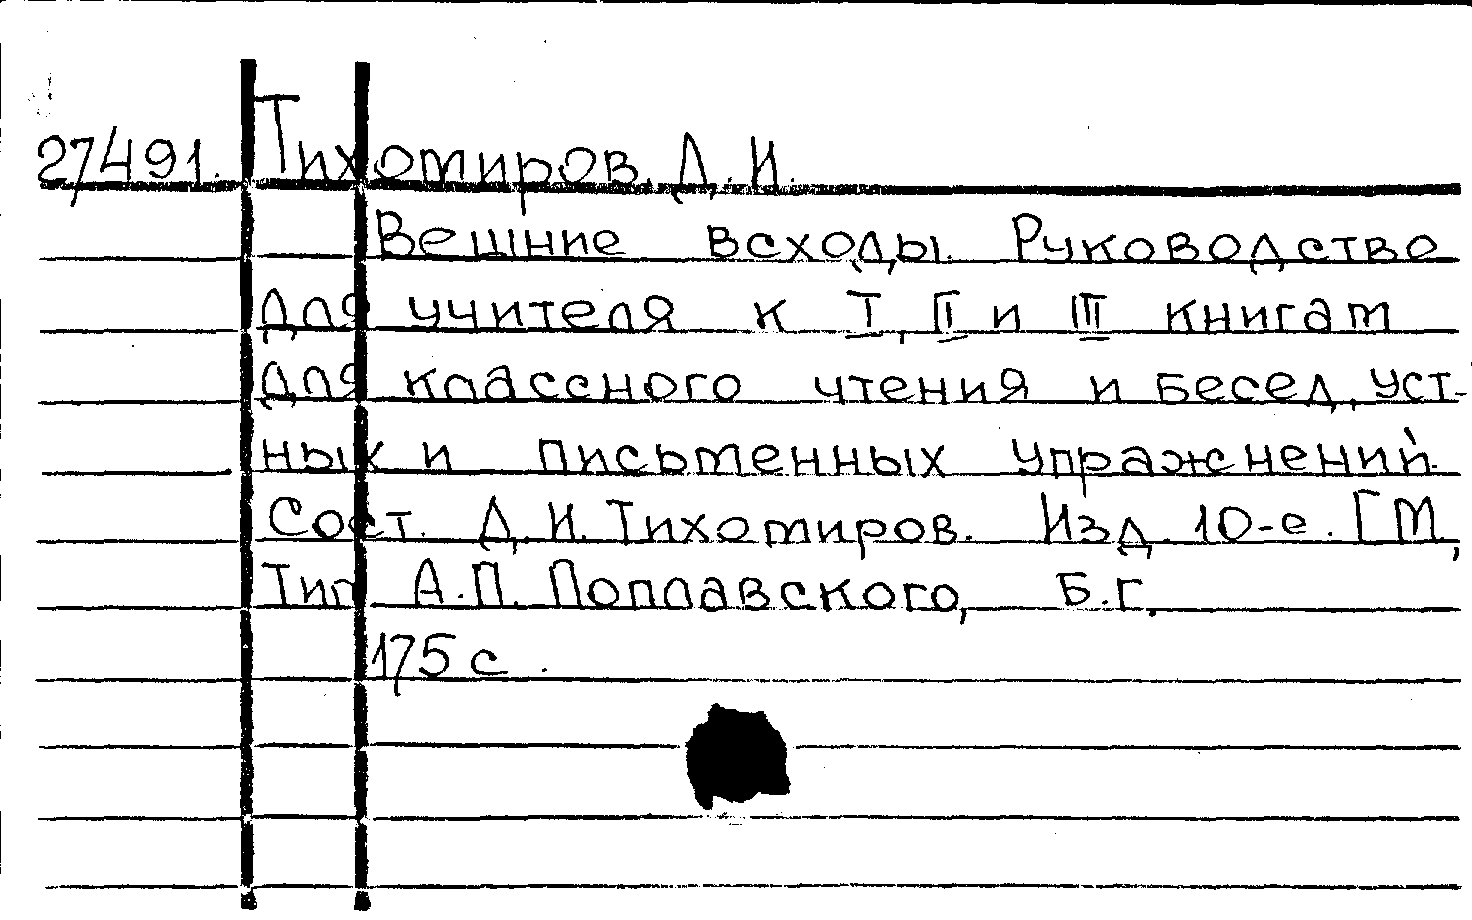 27491. Тихомиров, Д. И.
Вешние всходы. Руководство
для учителя к I, II и III книгам
для классного чтения и бесед, уст-
ных и письменных упражнений.
Сост. Д. И. Тихомиров. Изд. 10-е. [М,
Тип А. П. Поплавского, Б.г.
175 с.